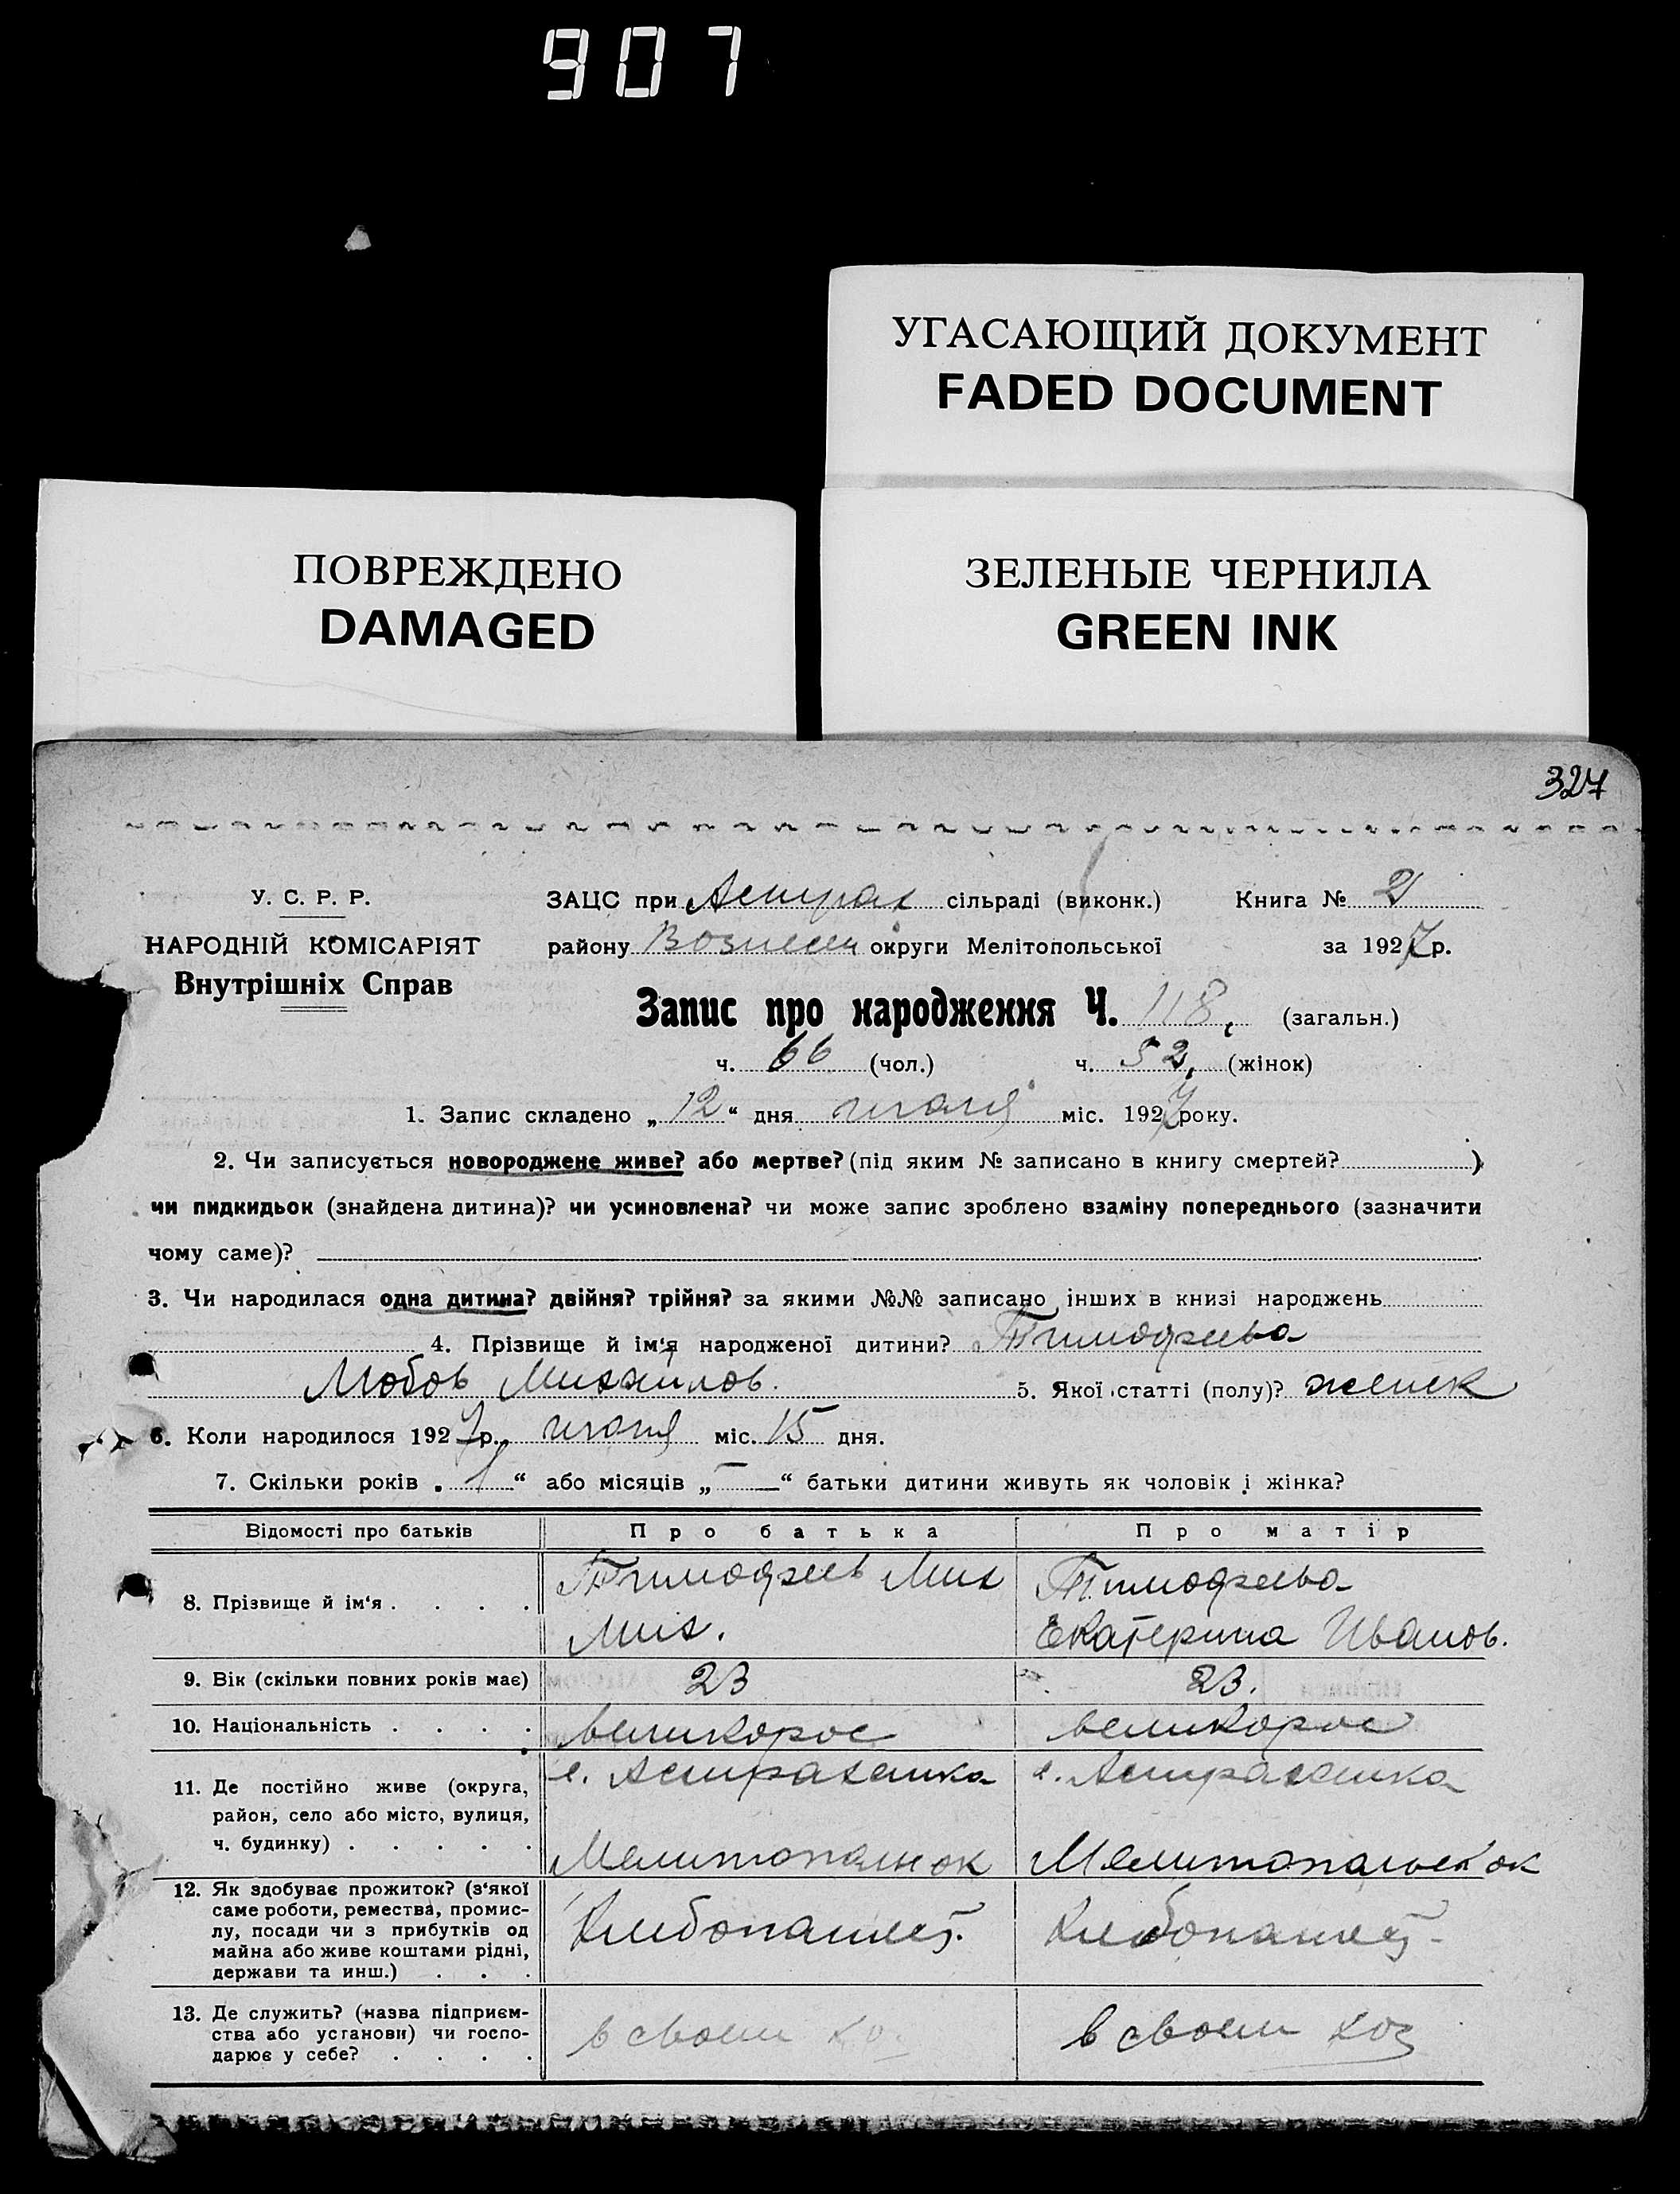 907
УГАСАЮЩИЙ ДОКУМЕНТ
FADED DOCUMENT
ПОВРЕЖДЕНО
DAMAGED
ЗЕЛЕНЫЕ ЧЕРНИЛА
GREEN INK
327
У. С. Р. Р.
НАРОДНІЙ КОМІСАРІЯТ
Внутрішніх Справ
ЗАЦС при Астрах сільраді (виконк.) Книга № 2
району Вознесен округи Мелітопольської за 1927 р.
Запис про народження Ч. 118, (загальн.)
ч. 66 (чол.) ч. 52, (жінок)
1. Запис складено „12“ дня міс. 1927 року.
2. Чи записується новороджене живе? або мертве? (під яким № записано в книгу смертей? )
чи пидкидьок (знайдена дитина)? чи усиновлена? чи може запис зроблено взаміну попереднього (зазначити
чому саме)?
3. Чи народилася одна дитина? двійня? трійня? за якими №№ записано інших в книзі народжень
4. Прізвище й ім‘я народженої дитини? Тимофеева
Любов Михаилов. 5. Якої статті (полу)? женск
6. Коли народилося 1927 р. міс. 15 дня.
7. Скільки років „1“ або місяців „—“ батьки дитини живуть як чоловік і жінка?
Відомості про батьків Про батька Про матір
8. Прізвище й ім‘я . . . . Тимофеев Мих Тимофеева
Мих. Екатерина Иванов.
9. Вік (скільки повних років має) 23 23.
10. Національність . . . . великорос великорос
11. Де постійно живе (округа, с. Астраханка с. Астраханка
район, село або місто, вулиця,
ч. будинку) . . . . . Мелитопольск ок Мелитопольск ок
12. Як здобуває прожиток? (з‘якої
саме роботи, ремества, промис-
лу, посади чи з прибутків од Хлебопашец. Хлебопашец-
майна або живе коштами рідні,
держави та инш.) . . .
13. Де служить? (назва підприєм-
ства або установи) чи госпо- в своем хо. в своем хоз
дарює у себе? . . . .